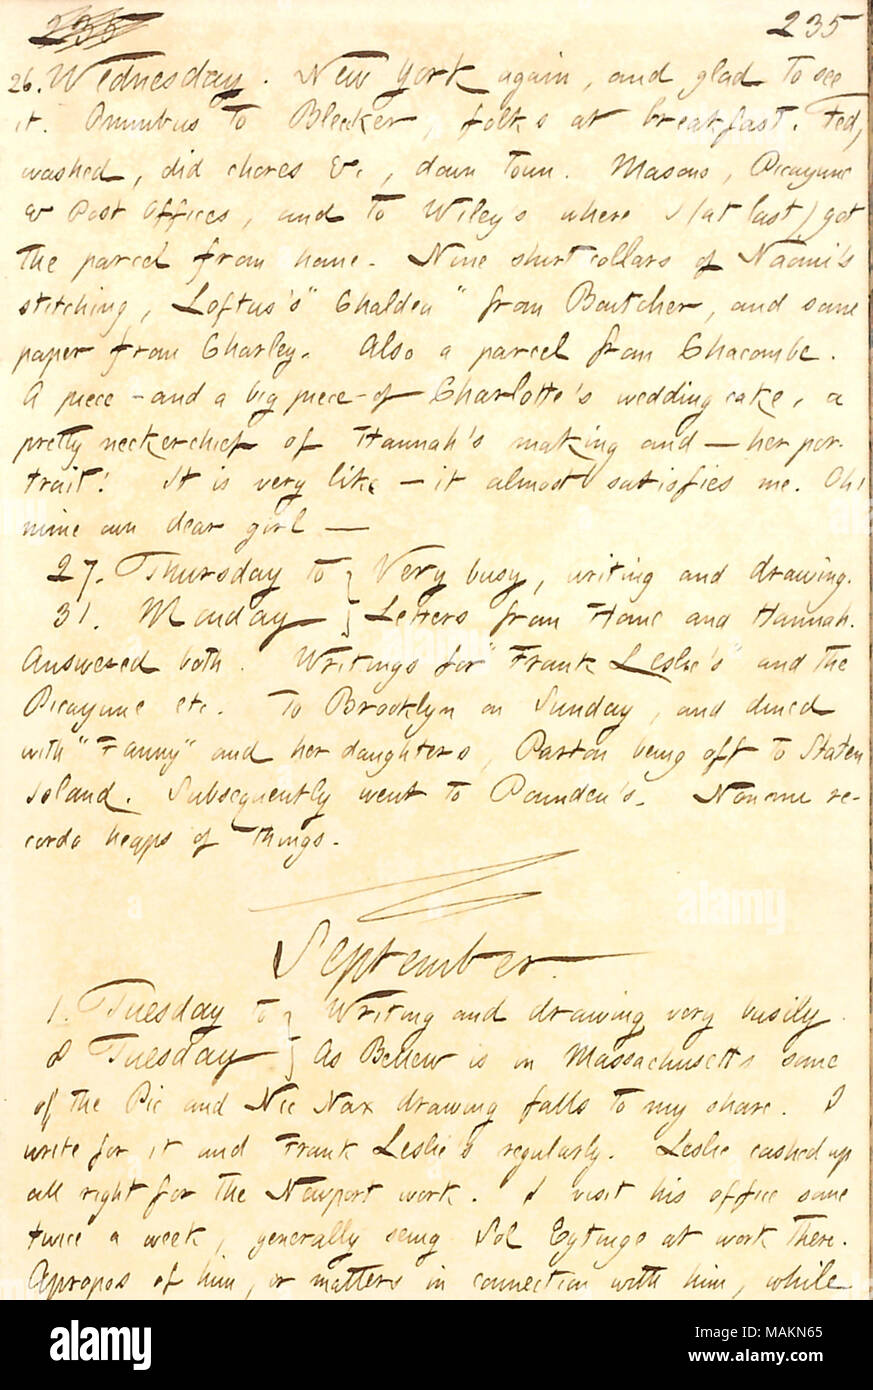 235 235
26. Wednesday. New York again, and glad to see
it. Omnibus to Bleeker, folks at breakfast. Fed,
washed, did chores &c, down town. Masons, Picayune
& Post Offices, and to Wiley's where I (at last) got
the parcel from home. Nine shirt collars of Naomi's
stitching, Loftus's "Chaldea" from Boutcher, and some
paper from Charley. Also a parcel from Chacombe.
A piece - and a big piece - of Charlotte's wedding cake, a
pretty neckerchief of Hannah's making and — her por-
trait! It is very like — it almost satisfies me. Oh!
mine own dear girl —
27. Thursday to } Very busy, writing and drawing.
31. Monday } Letters from Home and Hannah.
Answered both. Writings for "Frank Leslie's" and the
Picayune etc. To Brooklyn on Sunday, and dined
with "Fanny" and her daughters, Parton being off to Staten
Island. Subsequently went to Pounden's. Nonome re-
cords heaps of things.
September.
1. Tuesday to } Writing and drawing very busily.
8 Tuesday } As Bellew is in Massachusetts some
of the Pic and Nic Nax drawing falls to my share. I
write for it and Frank Leslie's regularly. Leslie cashed up
all right for the Newport work. I visit his office some
twice a week, generally seeing Sol Eytinge at work there.
Apropos of him, or matters in connection with him, while
alamy
Image ID: MAKN65
www.alamy.com